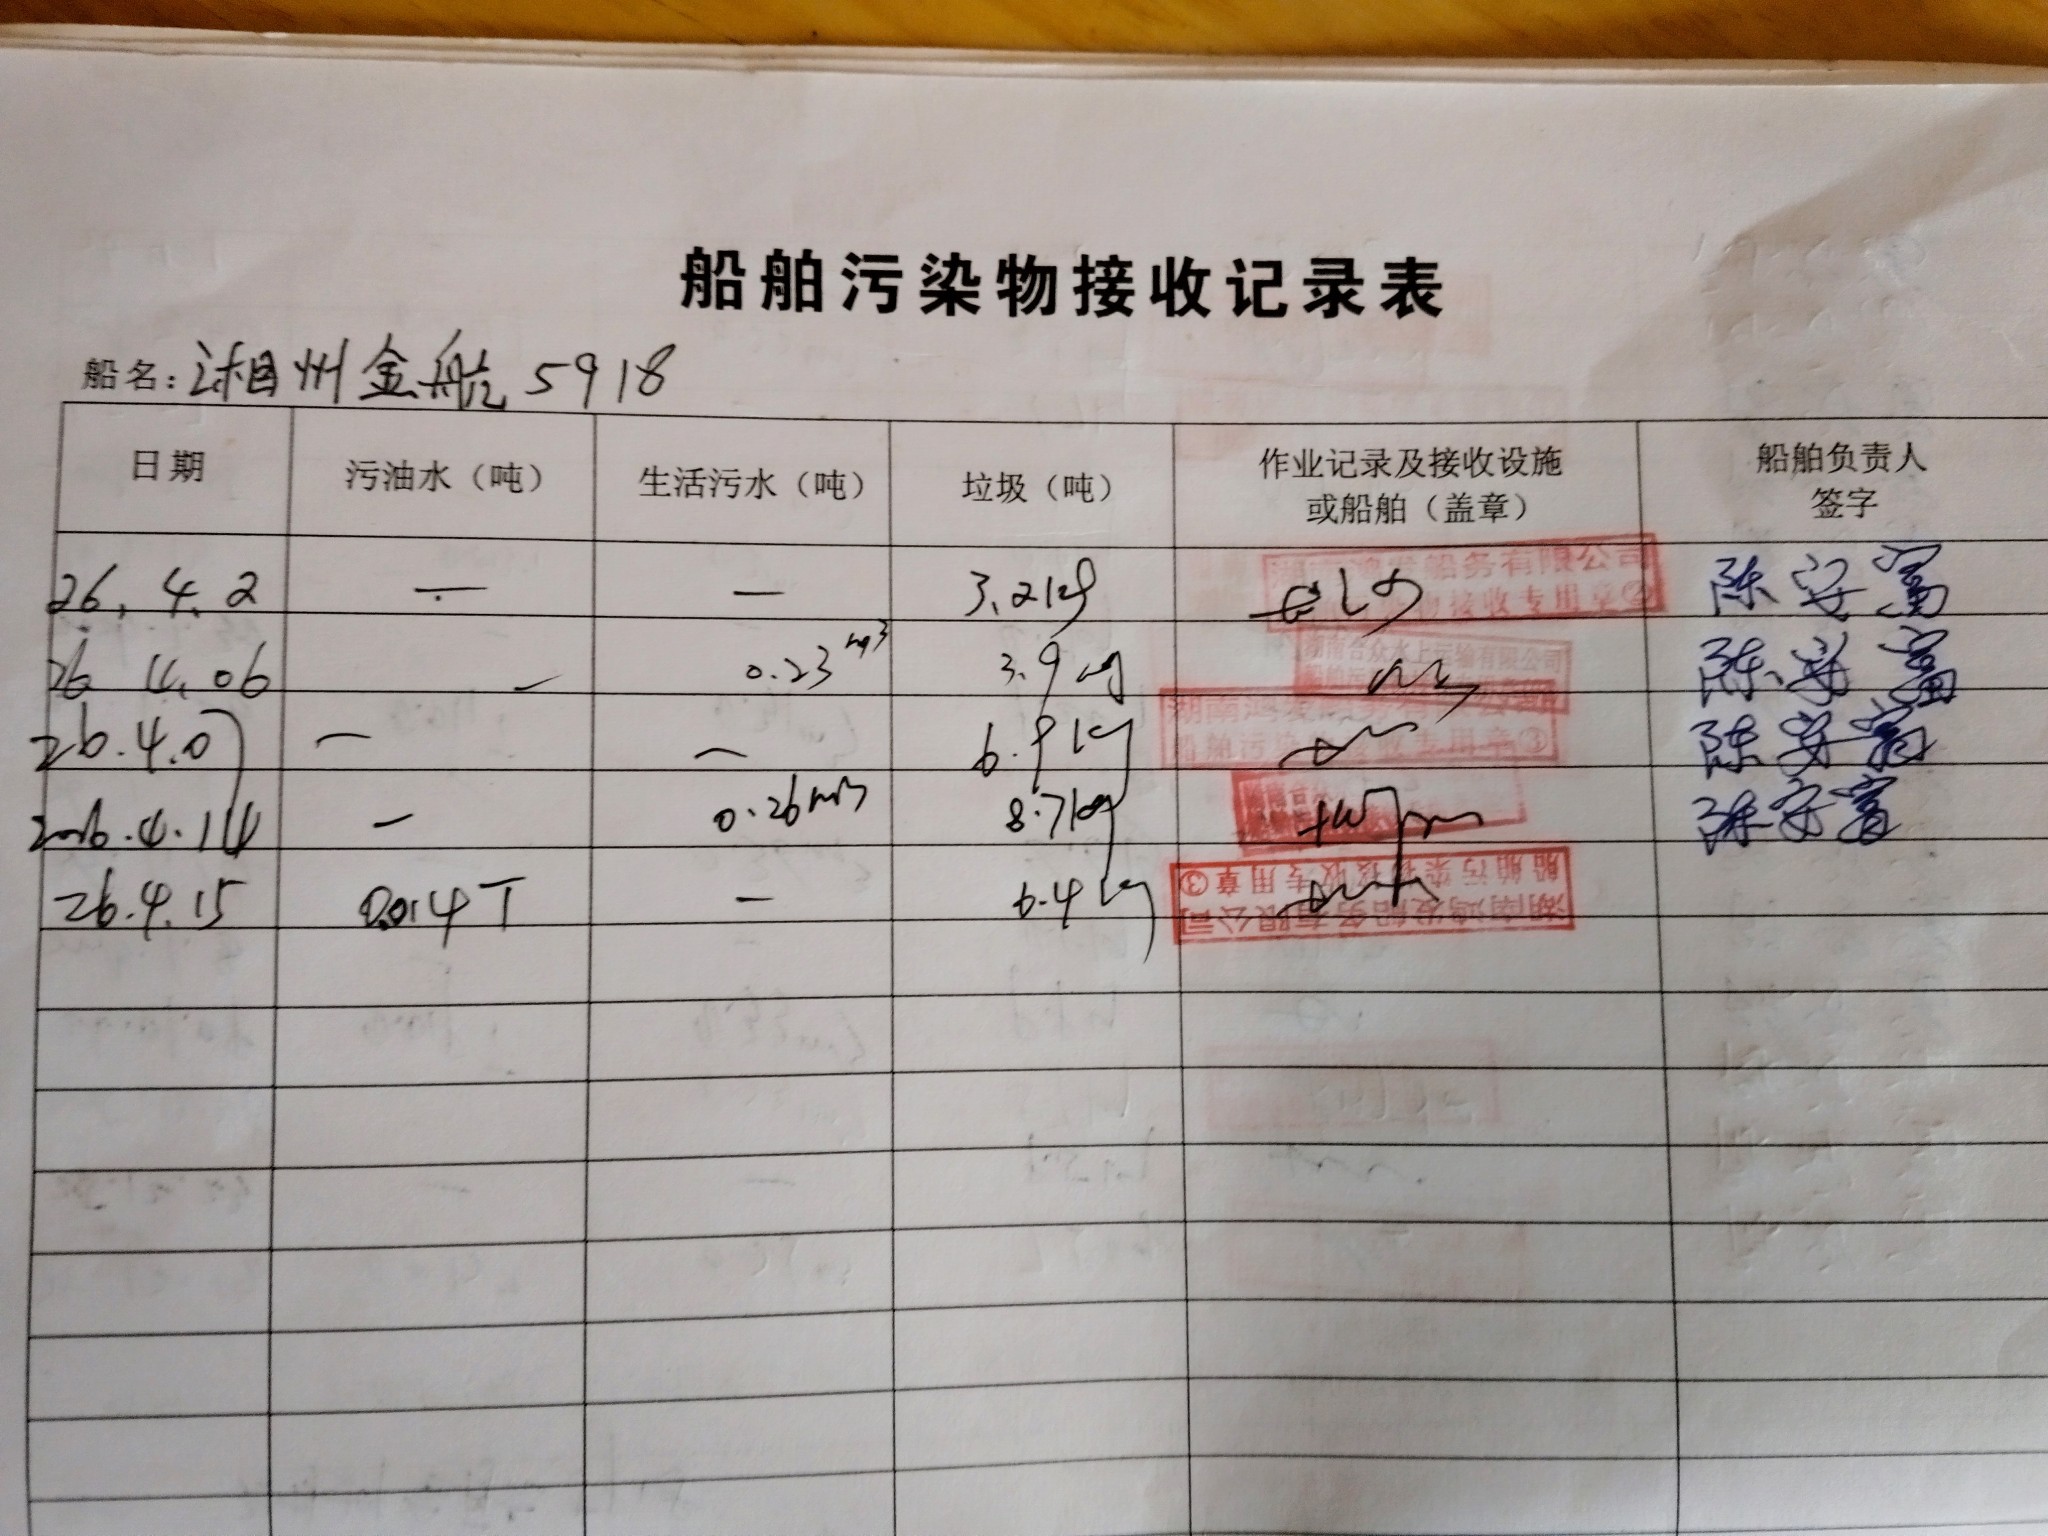 船舶污染物接收记录表
船名：湘州金航5918
日期 污油水（吨） 生活污水（吨） 垃圾（吨） 作业记录及接收设施或船舶（盖章） 船舶负责人签字
26.4.2 — — 3.2kg 船务有限公司 物接收专用章② 陈安
26.4.06 — 0.23m³ 3.9kg 湖南合众水上运输有限公司 陈安
26.4.07 — — 6.9kg 湖南鸿发 公司 船舶污染 收专用章③ 陈安
2026.4.14 — 0.26m3 8.7kg 陈安
26.4.15 0.014T — 6.4kg 湖南鸿发船务有限公司 船舶污染物接收专用章③